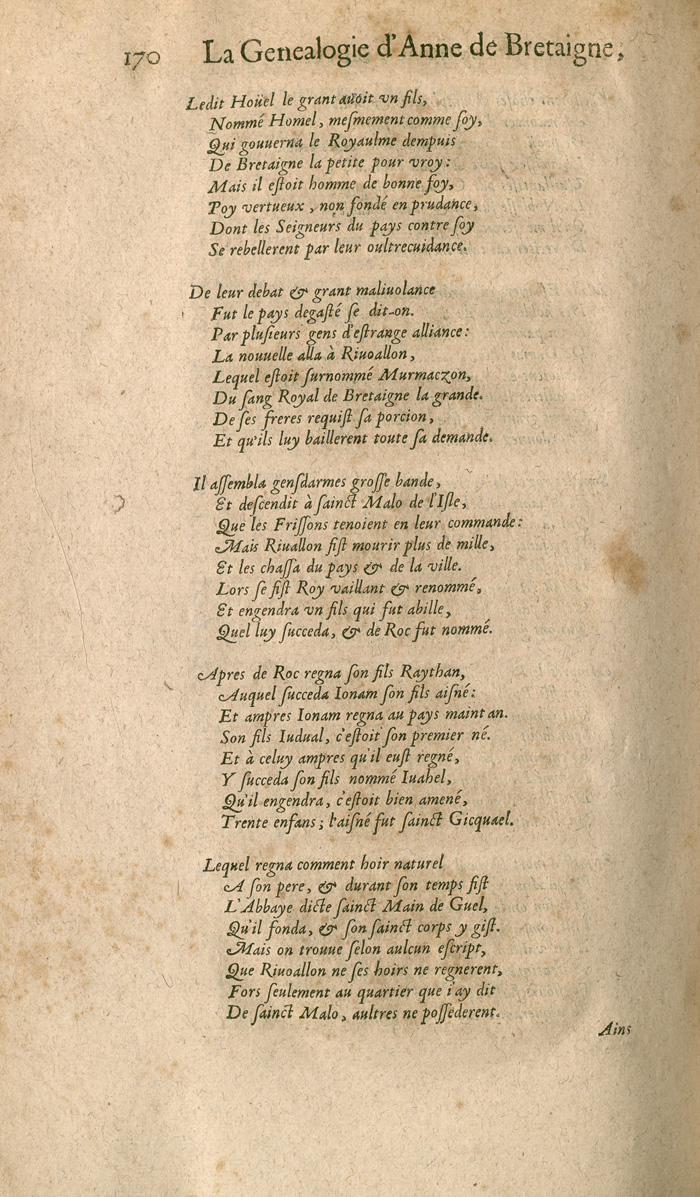 170 La Genealogie d'Anne de Bretaigne,
Ledit Hoüel le grant auoit vn fils,
Nommé Homel, meſmement comme ſoy,
Qui gouuerna le Royaulme dempuis
De Bretaigne la petite pour vroy:
Mais il eſtoit homme de bonne foy,
Poy vertueux, non fondé en prudance,
Dont les Seigneurs du pays contre ſoy
Se rebellerent par leur oultrecuidance.
De leur debat & grant maliuolance
Fut le pays degaſté ſe dit-on.
Par pluſieurs gens d'eſtrange alliance:
La nouuelle alla à Riuoallon,
Lequel eſtoit ſurnommé Murmaczon,
Du ſang Royal de Bretaigne la grande.
De ſes freres requiſt ſa porcion,
Et qu'ils luy baillerent toute ſa demande.
Il aſſembla genſdarmes groſſe bande,
Et deſcendit à ſainct Malo de l'Iſle,
Que les Friſſons tenoient en leur commande:
Mais Riuallon fiſt mourir plus de mille,
Et les chaſſa du pays & de la ville.
Lors ſe fiſt Roy vaillant & renommé,
Et engendra vn fils qui fut abille,
Quel luy ſucceda, & de Roc fut nommé.
Apres de Roc regna ſon fils Raythan,
Auquel ſucceda Ionam ſon fils aiſné:
Et ampres Ionam regna au pays maintan.
Son fils Iudual, c'eſtoit ſon premier né.
Et à celuy ampres qu'il euſt regné,
Y ſucceda ſon fils nommé Iuahel,
Qu'il engendra, c'eſtoit bien amené,
Trente enfans; l'aiſné fut ſainct Gicquael.
Lequel regna comment hoir naturel
A ſon pere, & durant ſon temps fiſt
L'Abbaye dicte ſainct Main de Guel,
Qu'il fonda, & ſon ſainct corps y giſt.
Mais on trouue ſelon aulcun eſcript,
Que Riuoallon ne ſes hoirs ne regnerent,
Fors ſeulement au quartier que i'ay dit
De ſainct Malo, aultres ne poſſederent.
Ains